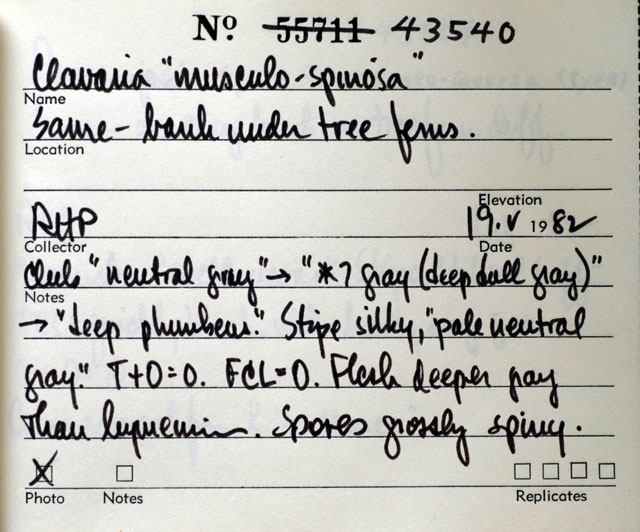 Nº 55711 43540
Clavaria "musculo-spinosa"
Name
Same - bank under tree ferns.
Location
Elevation
RHP 19.V 1982
Collector Date
Club "neutral gray" → "*7 gray (deep dull gray)"
Notes
→ "deep plumbeus." Stipe silky, "pale neutral
gray." T+O=0. FCL=0. Flesh deeper gray
than hymenium. Spores grossly spiny.
Photo Notes Replicates